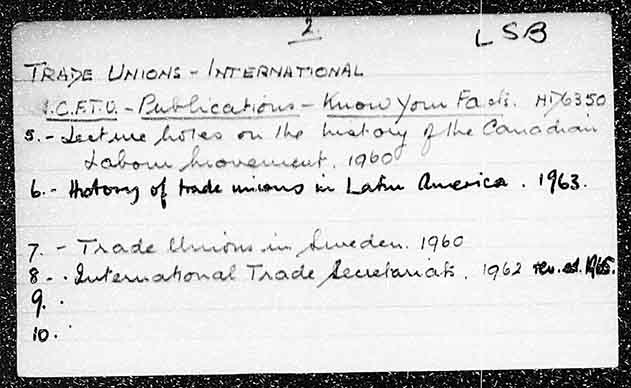 2.
LSB
TRADE UNIONS - INTERNATIONAL
I.C.F.T.U. - Publications - Know Your Facts. HD6350
5. - Lecture notes on the history of the Canadian
Labour movement. 1960
6. - History of trade unions in Latin America. 1963.
7. - Trade Unions in Sweden. 1960
8 - . International Trade Secretariats. 1962 rev. ed. 1965.
9. .
10. .